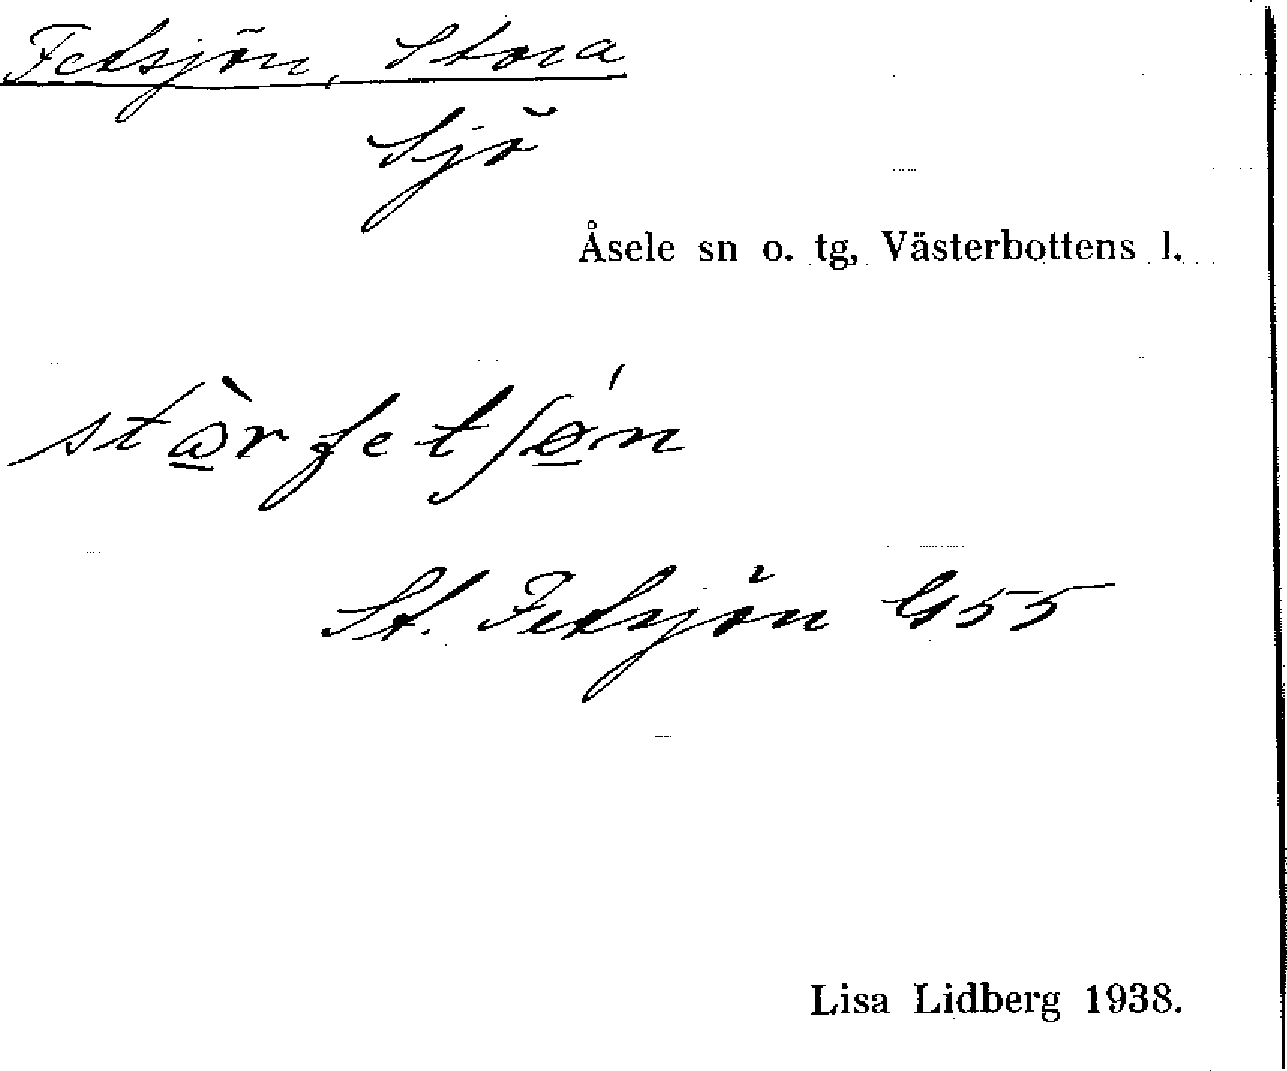 Fetsjön, Stora
Sjö
Åsele sn o. tg, Västerbottens l.
stὼ̲rfetʃǿ̲n
St. Fetsjön G55
Lisa Lidberg 1938.